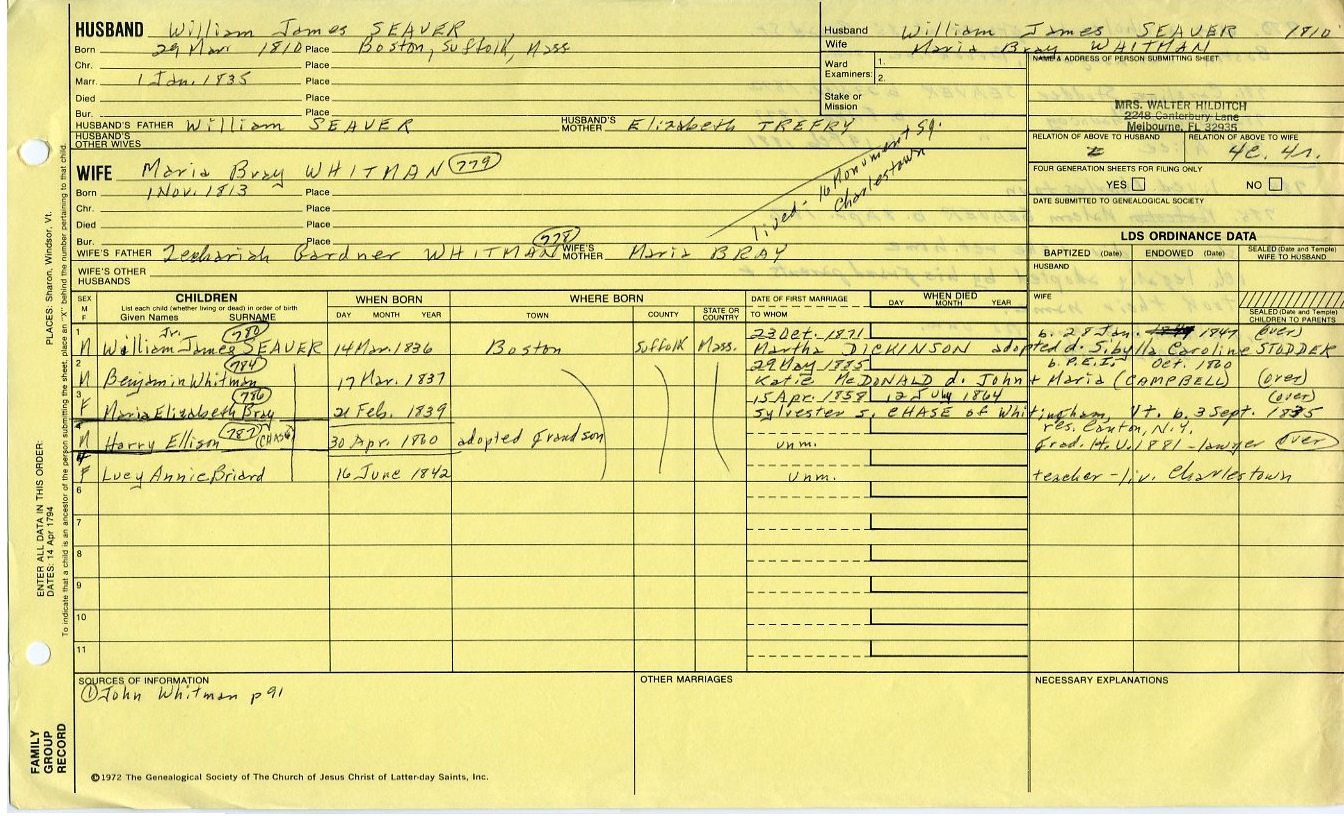 HUSBAND William James SEAVER
Born 29 Mar 1810 Place Boston, Suffolk, Mass
Chr. Place
Marr. 1 Jan. 1835 Place
Died Place
Bur. Place
HUSBAND'S FATHER William SEAVER HUSBAND'S MOTHER Elizabeth TREFRY
HUSBAND'S OTHER WIVES
WIFE Maria Bray WHITMAN 779
Born 1 Nov. 1813 Place
Chr. Place
Died Place
Bur. Place
lived - 16 Monument Sq. Charlestown
WIFE'S FATHER Zechariah Gardner WHITMAN 778 WIFE'S MOTHER Maria BRAY
WIFE'S OTHER HUSBANDS
Husband William James SEAVER 1810
Wife Maria Bray WHITMAN
Ward Examiners: 1.
2.
Stake or Mission
NAME & ADDRESS OF PERSON SUBMITTING SHEET
MRS. WALTER HILDITCH
2248 Canterbury Lane
Melbourne, FL 32935
RELATION OF ABOVE TO HUSBAND RELATION OF ABOVE TO WIFE
4c. 4r.
FOUR GENERATION SHEETS FOR FILING ONLY
YES NO
DATE SUBMITTED TO GENEALOGICAL SOCIETY
LDS ORDINANCE DATA
BAPTIZED (Date) ENDOWED (Date) SEALED (Date and Temple) WIFE TO HUSBAND
HUSBAND
WIFE
SEALED (Date and Temple) CHILDREN TO PARENTS
SEX M F
CHILDREN
List each child (whether living or dead) in order of birth
Given Names SURNAME
WHEN BORN
DAY MONTH YEAR
WHERE BORN
TOWN COUNTY STATE OR COUNTRY
DATE OF FIRST MARRIAGE
TO WHOM
WHEN DIED
DAY MONTH YEAR
1 M William James Jr. SEAVER 780 14 Mar. 1836 Boston Suffolk Mass. 23 Oct. 1871 b. 28 Jan. 1847 (over)
Martha DICKINSON adopted d. Sibylla Caroline STODDER
2 M Benjamin Whitman 784 17 Mar. 1837 29 May 1885 b. P.E.I. Oct. 1860
Katie McDONALD d. John + Maria (CAMPBELL) (over)
3 F Maria Elizabeth Bray 786 21 Feb. 1839 15 Apr. 1858 12 July 1864 (over)
Sylvester S. CHASE of Whitingham, Vt. b. 3 Sept. 1835
res. Canton, N.Y.
M Harry Ellison 787 (CHASE) 30 Apr. 1860 adopted grandson unm. Grad. H.U. 1881 - lawyer over
4 F Lucy Annie Briard 16 June 1842 unm. teacher - liv. Charlestown
6
7
8
9
10
11
SOURCES OF INFORMATION
① John Whitman p 91
OTHER MARRIAGES
NECESSARY EXPLANATIONS
©1972 The Genealogical Society of The Church of Jesus Christ of Latter-day Saints, Inc.
FAMILY GROUP RECORD
ENTER ALL DATA IN THIS ORDER:
DATES: 14 Apr 1794
PLACES: Sharon, Windsor, Vt.
To indicate that a child is an ancestor of the person submitting the sheet, place an "X" behind the number pertaining to that child.